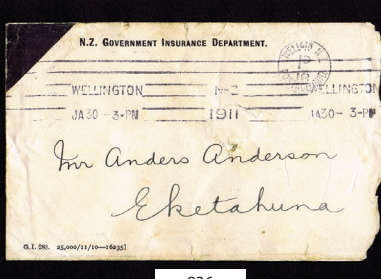 N.Z. GOVERNMENT INSURANCE DEPARTMENT.
WELLINGTON N-Z WELLINGTON
JA 30 - 3-PM 1911 JA 30 - 3-PM
Mr Anders Anderson
Eketahuna
G.I. 88. 25,000/11/10—16235]